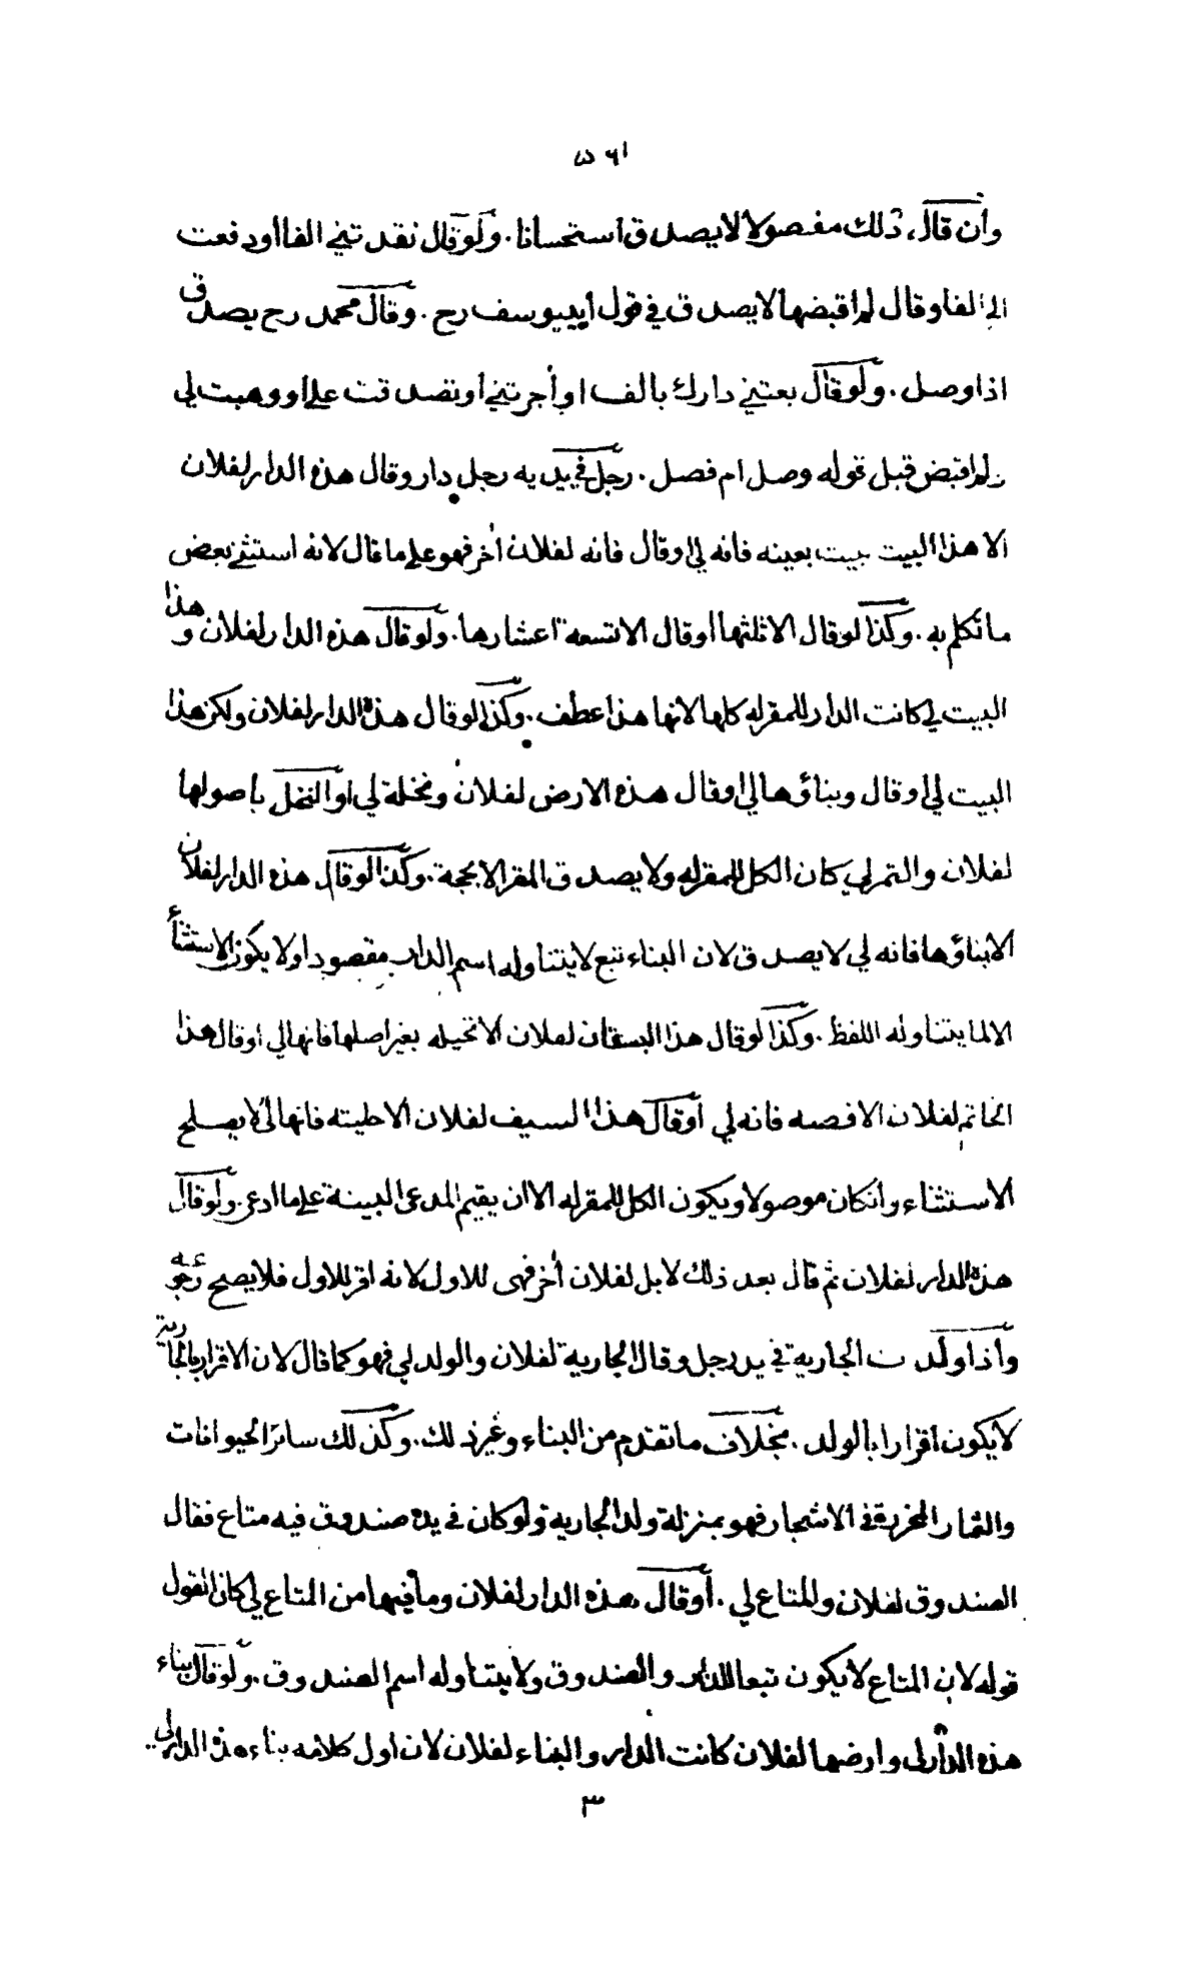 ٥٦١
وان قال ذلك مفصولا لا يصدق استحسانا . ولو قال نقدتني الفا او دفعت
الي الفا وقال لم اقبضها لا يصدق في قول ابي يوسف رح . وقال محمد رح يصدق
اذا وصل . ولو قال بعتني دارك بالف او آجرتني او تصدقت علي او وهبت لي
ولم اقبض قبل قوله وصل ام فصل . رجل في يديه رجل دار وقال هذه الدار لفلان
الا هذا البيت بيت بعينه فانه لي او قال فانه لفلان آخر فهو على ما قال لانه استثنى بعض
ما تكلم به . وكذا لو قال الا ثلثها او قال الا تسعة اعشارها . ولو قال هذه الدار لفلان و هذا
البيت لي كانت الدار للمقر له كلها لانها هذا عطف . وكذا لو قال هذه الدار لفلان ولكن هذا
البيت لي او قال وبناؤها لي او قال هذه الارض لفلان ونخلة لي او النخل باصولها
لفلان والتمر لي كان الكل للمقر له ولا يصدق المقر الا بحجة . وكذا لو قال هذه الدار لفلان
الا بناؤها فانه لي لا يصدق لان البناء تبع لا يتناوله اسم الدار مقصودا ولا يكون الاستثناء
الا لما يتناوله اللفظ . وكذا لو قال هذا البستان لفلان الا نخيله بغير اصلها فانها لي او قال هذا
الخاتم لفلان الا فصه فانه لي او قال هذا السيف لفلان الا حليته فانها لي لا يصلح
الاستثناء وان كان موصولا ويكون الكل للمقر له الا ان يقيم المدعي البينة على ما ادعى . ولو قال
هذه الدار لفلان ثم قال بعد ذلك لا بل لفلان آخر فهي للاول لانه اقر للاول فلا يصح رجوعه
واذا ولدت الجارية في يد رجل وقال الجارية لفلان والولد لي فهو كما قال لان الاقرار بالجارية
لا يكون اقرارا بالولد . بخلاف ما تقدم من البناء وغير ذلك . وكذلك سائر الحيوانات
والثمار المحرزة في الاشجار فهو بمنزلة ولد الجارية ولو كان في يده صندوق فيه متاع فقال
الصندوق لفلان والمتاع لي . او قال هذه الدار لفلان وما فيها من المتاع لي كان القول
قوله لان المتاع لا يكون تبعا للدار والصندوق ولا يتناوله اسم الصندوق . ولو قال بناء
هذه الدار لي وارضها لفلان كانت الدار والبناء لفلان لان اول كلامه بناء هذه الدار لي
٣